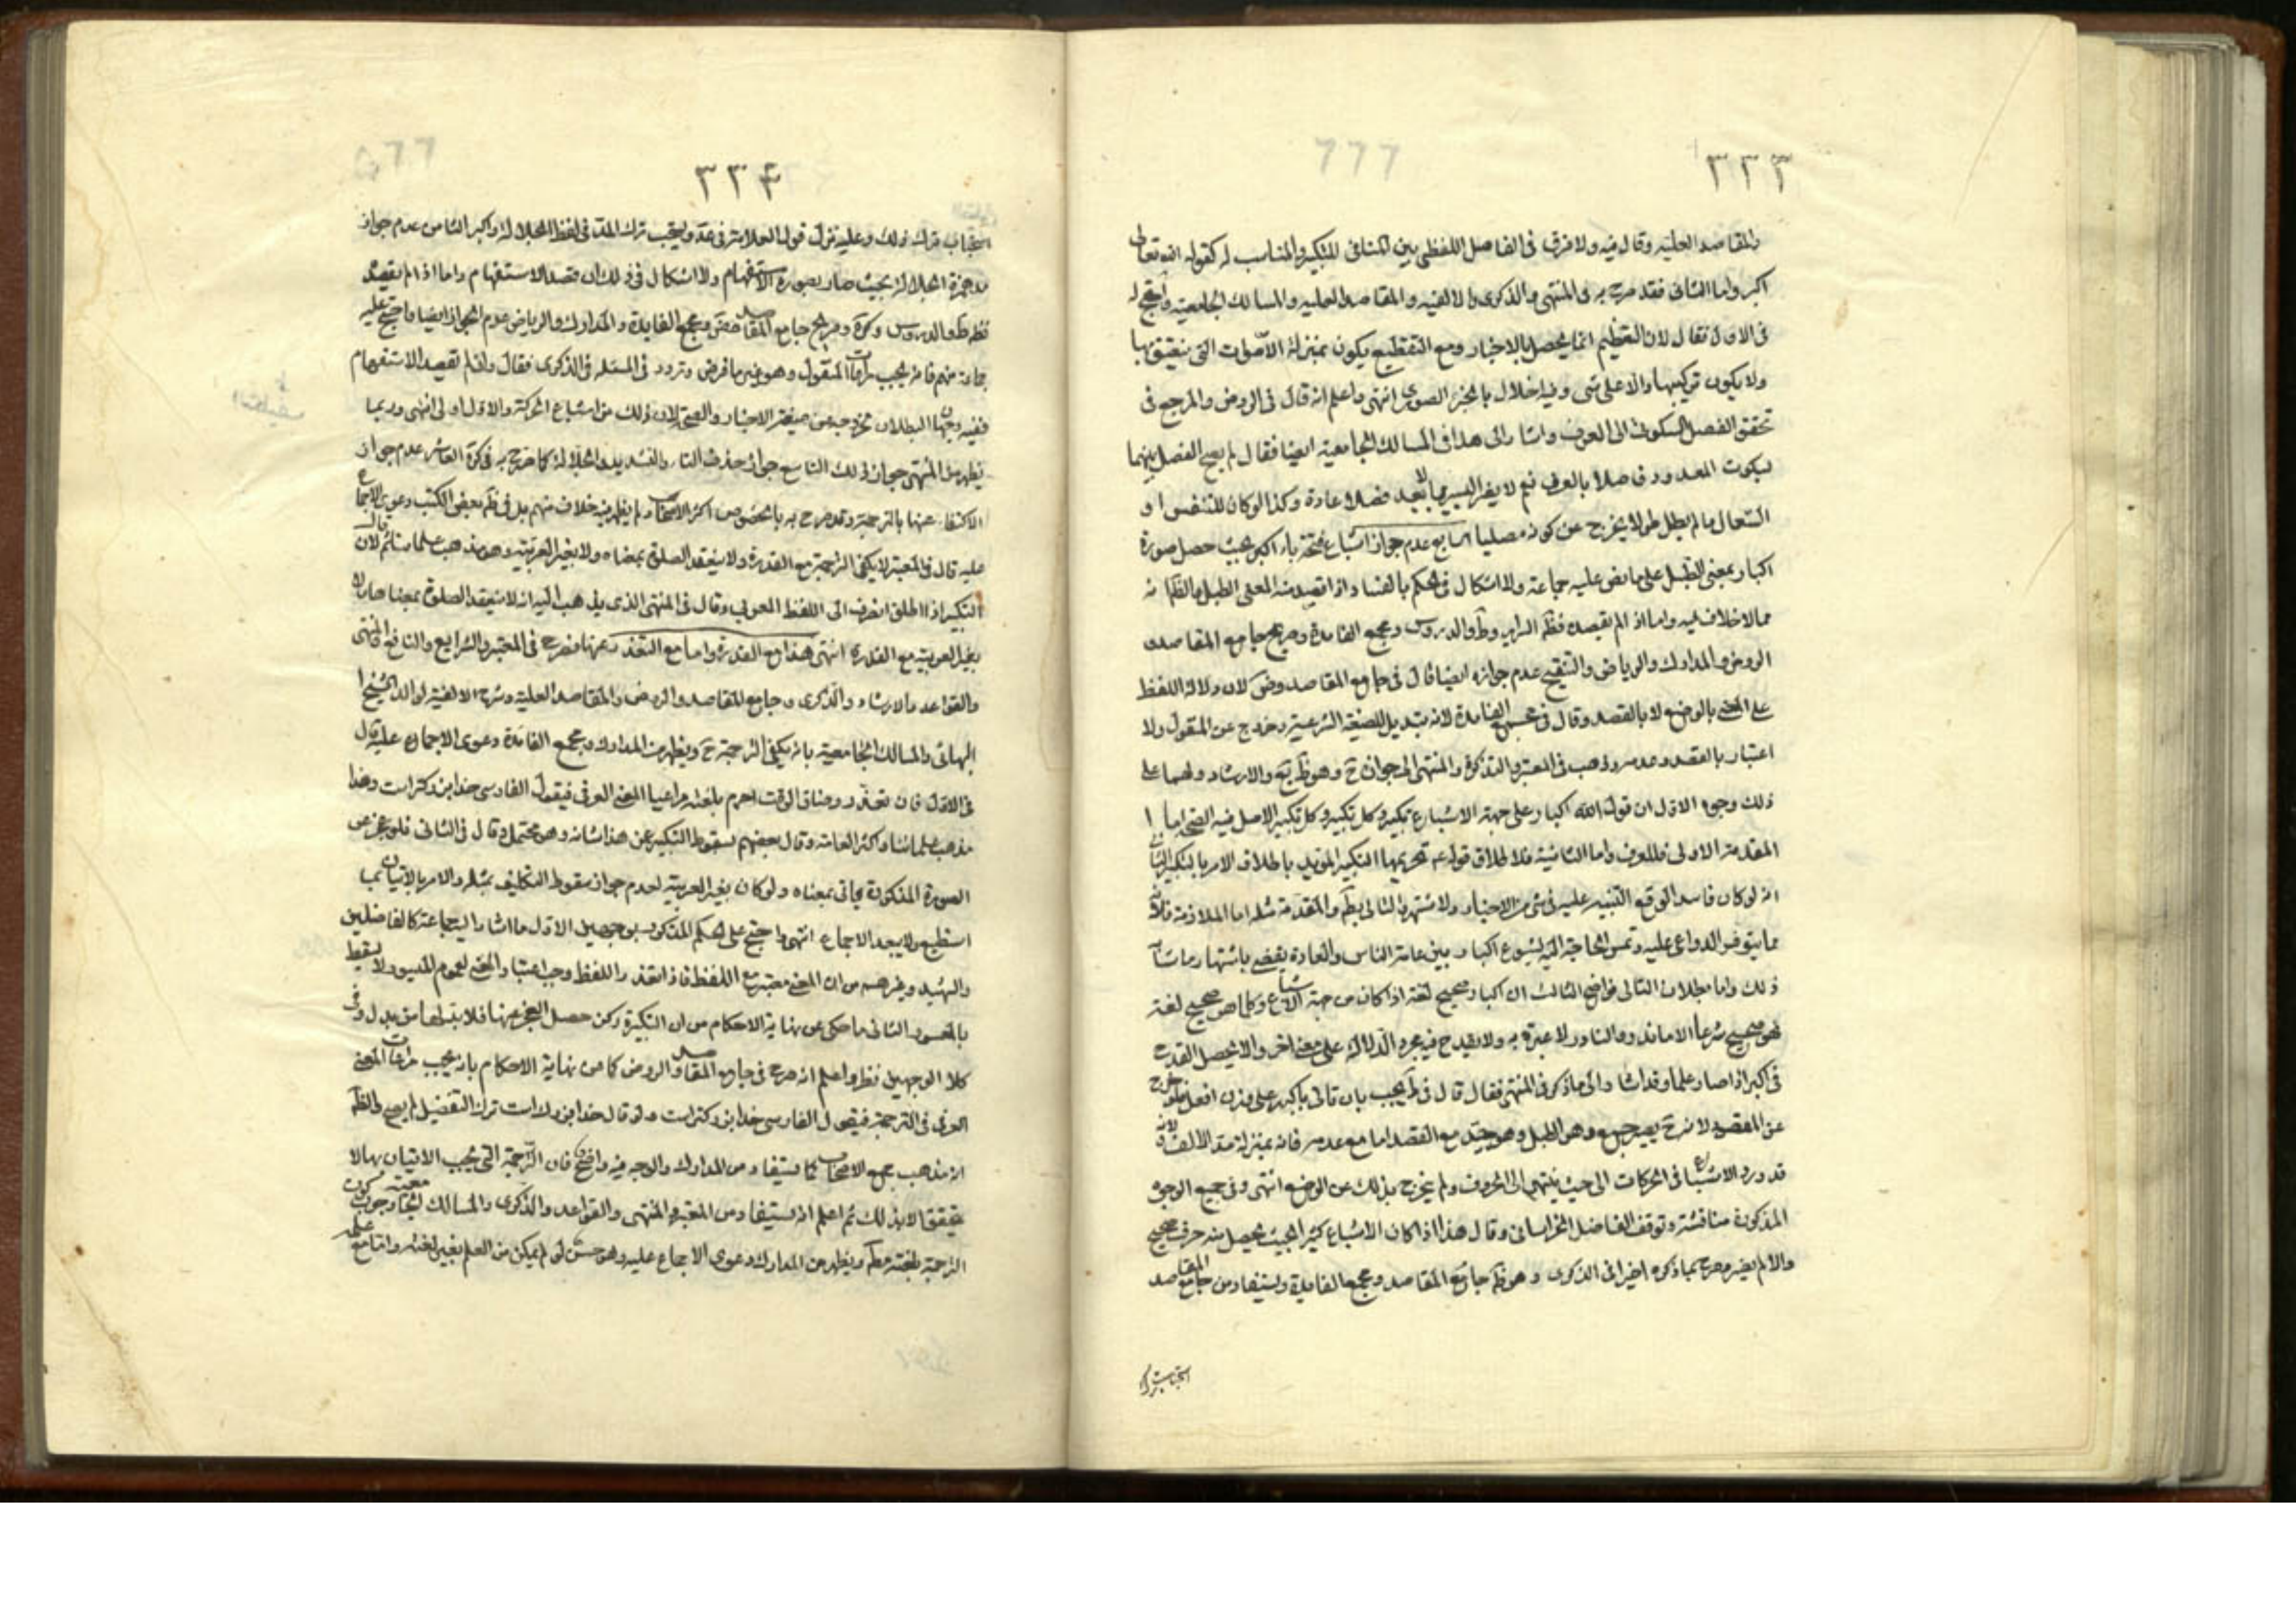 ٣٣٣
والمقاصد العلية وقال فيه ولا فرق في الفاصل اللفظي بين المنافي للتكبير والمناسب له كقوله الله تعالى
اكبر واما الثاني فقد صرح به في المنتهى والذكرى والالفيه والمقاصد العليه والمسالك الجامعيه واحتج له
في الاول فقال لان التعظيم انما يحصل بالاخبار ومع التقطيع يكون بمنزلة الاصوات التي ينعق بها
ولا يكون تركيبها دالا على شي وفيه اخلال بالجزء الصوري انتهى واعلم انه قال في الروض والمرجع في
تحقق الفصل السكوتي الى العرف واشار الى هذا في المسالك الجامعية ايضا فقال لم يصح الفصل بينهما
بسكوت المعدود فاصلا بالعرف نعم لا يضر اليسير بما لا يعد فصلا عادة وكذا لو كان للتنفس او
السعال ما لم يطل طولا يخرج عن كونه مصليا السابع عدم جواز اشباع فتحة باء اكبر بحيث حصل صورة
اكبار بمعنى الطبل على ما نص عليه جماعة ولا اشكال في الحكم بالفساد اذا قصد منه المعنى الطبل والظاهر انه
مما لا خلاف فيه واما اذا لم يقصده فظ السرائر وط والدروس ومجمع الفائدة وصريح جامع المقاصد و
الروض والمدارك والرياض والتنقيح عدم جوازه ايضا قال في جامع المقاصد وض لان دلالة اللفظ
على المعنى بالوضع لا بالقصد وقال في مجمع الفائدة لانه تبديل للصيغة الشرعية وخروج عن المنقول ولا
اعتبار بالقصد وعدمه وذهب في المعتبر والتذكرة والمنتهى الى جوازه ح وهو ظ يع والارشاد ولهما على
ذلك وجوه الاول ان قول الله اكبار على جهة الاشباع تكبير وكل تكبير الاصل فيه الصحة اما
المقدمة الاولى فللعرف واما الثانية فلاطلاق قوله ع تحريمها التكبير المؤيد باطلاق الامر بالتكبير الثاني
انه لو كان فاسدا لوقع التنبيه عليه في شي من الاخبار ولاشتهر والتالي بط فالمقدم مثله اما الملازمة فلانه
مما يتوفر الدواعي عليه وتمس الحاجة اليه لشيوع اكبار بين عامة الناس والعادة يقضي باشتهار ما شأنه
ذلك واما بطلان التالي فواضح الثالث ان اكبار صحيح لغة اذا كان من جهة الاشباع وكلما هو صحيح لغة
فهو صحيح شرعا الا ما ندر والنادر لا عبرة به ولا يقدح فيه مجرد الدلالة على معنى اخر والا لحصل القدح
في اكبر اذا صار علما وقد اشار الى ما ذكر في المنتهى فقال قال في ط يجب بان قاتي باكبر على وزن افعل فلو خرج
عن المقصود لانه ح يصير جمع وهو الطبل وهو جيد مع القصد اما مع عدمه فانه بمنزلة مد الالف لانه
قد ورد الاشباع في الحركات الى حيث ينتهي الى الحروف ولم يخرج بذلك عن الوضع انتهى وفي جميع الوجوه
المذكورة مناقشة وتوقف الفاضل الخراساني وقال هذا اذا كان الاشباع كثيرا بحيث يحصل منه حرف صحيح
والا لم يضر وصرح بما ذكره اخيرا في الذكرى وهو ظ جامع المقاصد ومجمع الفايدة ويستفاد من جامع المقاصد
استحباب ترك
٣٣٤
استحباب ترك ذلك وعليه نزل قول العلامة في عد ويستحب ترك المد في لفظ الجلالة واكبر الثامن عدم جواز
مد همزة الجلالة بحيث صار بصورة الاستفهام ولا اشكال في ذلك ان قصد الاستفهام واما اذا لم يقصد
فظ ط والدروس وكرة وصريح جامع المقاصد وض ومجمع الفايدة والمدارك والرياض عدم الجواز ايضا واحتج عليه
جماعة منهم فانه يجب مراعات المنقول وهو غير ما فرض وتردد في المسئله في الذكرى فقال واذا لم تقصد الاستفهام
ففيه وجهان البطلان لخروجه عن صيغة الاخبار والصحة لان ذلك من اشباع الحركة والاول اولى انتهى وربما
يظهر من المنتهى جواز ذلك التاسع جواز حذف التار والتشديد والجلالة كما صرح به في كرة العاشر عدم جواز
الاكتفاء عنها بالترجمة وقد صرح به بالخصوص اكثر الاصحاب ولم يظهر فيه خلاف منهم بل في ظ بعض الكتب دعوى الاجماع
عليه قال في المعتبر لا يكفي الترجمة مع القدرة ولا ينعقد الصلوة بمعناه ولا بغير العربية وهو مذهب علمائنا ثم قال لان
التكبير اذا اطلق انصرف الى اللفظ العربي وقال في المنتهى الذي يذهب اليه انه لا ينعقد الصلوة بمعناها ولا
بغير العربيه مع القدرة انتهى هذا مع القدرة واما مع التعذر عنها فصرح في المعتبر والشرايع والنافع والمنتهى
والقواعد والارشاد والذكرى وجامع المقاصد والروض والمقاصد العليه وشرح الالفية لوالد الشيخ
البهائي والمسالك الجامعية بانه يكفي الترجمة ح ويظهر من المدارك ومجمع الفائدة دعوى الاجماع عليه قال
في الاول فان تعذر وضاق الوقت احرم بلغته مراعيا المعنى العربي فيقول الفارسي خدا بزركتراست وهذا
مذهب علمائنا واكثر العامه وقال بعضهم بسقوط التكبير عن هذا شانه وهو محتمل وقال في الثاني فلو عجز عن
الصورة المذكورة ياتي بمعناه ولو كان بغير العربية لعدم جواز سقوط التكليف بمثله والامر بالاتيان بما
استطيع ولا يبعد الاجماع انتهى واحتج على الحكم المذكور بوجهين الاول ما اشار اليه جماعة كالفاضلين
والشهيد وغيرهم من ان المعنى معتبر مع اللفظ فاذا تعذر اللفظ وجب اعتبار المعنى لعموم الميسور لا يسقط
بالمعسور الثاني ما حكى عن نهاية الاحكام من ان التكبيرة ركن حصل العجز عنها فلا بد لها من بدل وفي
كلا الوجهين نظر واعلم انه صرح في جامع المقاصد والروض كما عن نهاية الاحكام بانه يجب مراعات المعنى
العربي في الترجمة فيقول الفارسي خدا بزركتراست ولو قال خدا بزرك است ترك التفضيل لم يصح والظ
انه مذهب جميع الاصحاب كما يستفاد من المدارك والوجه فيه واضح فان الترجمة التي يجب الاتيان بها لا
يتحقق الا بذلك ثم اعلم انه يستفاد من المعتبر والمنتهى والقواعد والذكرى والمسالك الجامعية وجوب كون
الترجمة بلغته مط ويظهر من المدارك دعوى الاجماع عليه وهو حسن لو لم يمكن من العلم بغير لغته واما مع